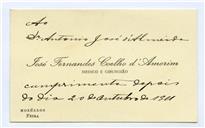 Ao
Dr. Antonio José d'Almeida
José Fernandes Coelho d'Amorim
MEDICO E CIRURGIÃO
cumprimenta depois
do dia 20 d'Outubro de 1911
MOSÉLLOS
FEIRA